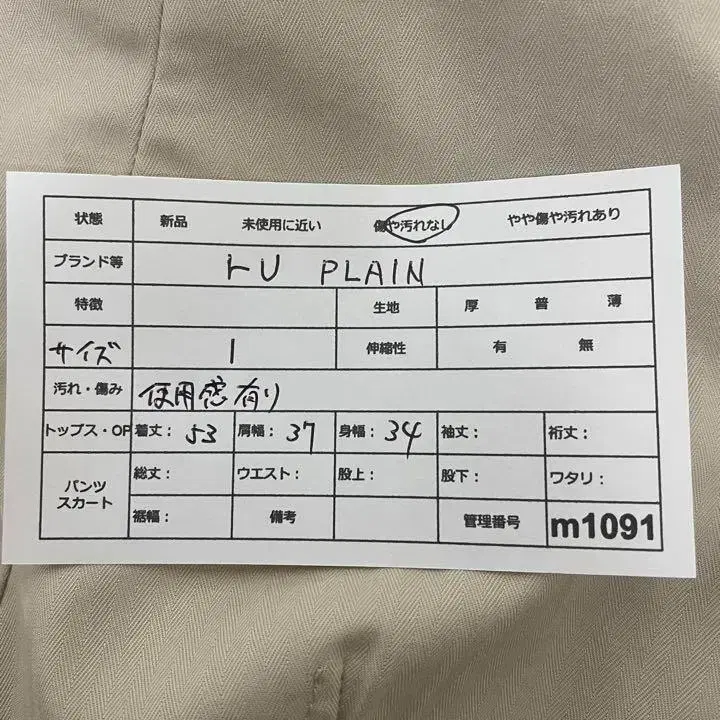 状態 新品 未使用に近い 傷や汚れなし やや傷や汚れあり
ブランド等 トU PLAIN
特徴 生地 厚 普 薄
サイズ 1 伸縮性 有 無
汚れ・傷み 使用感有り
トップス・OP 着丈: 53 肩幅: 37 身幅: 34 袖丈: 裄丈:
パンツ スカート 総丈: ウエスト: 股上: 股下: ワタリ:
裾幅: 備考 管理番号 m1091